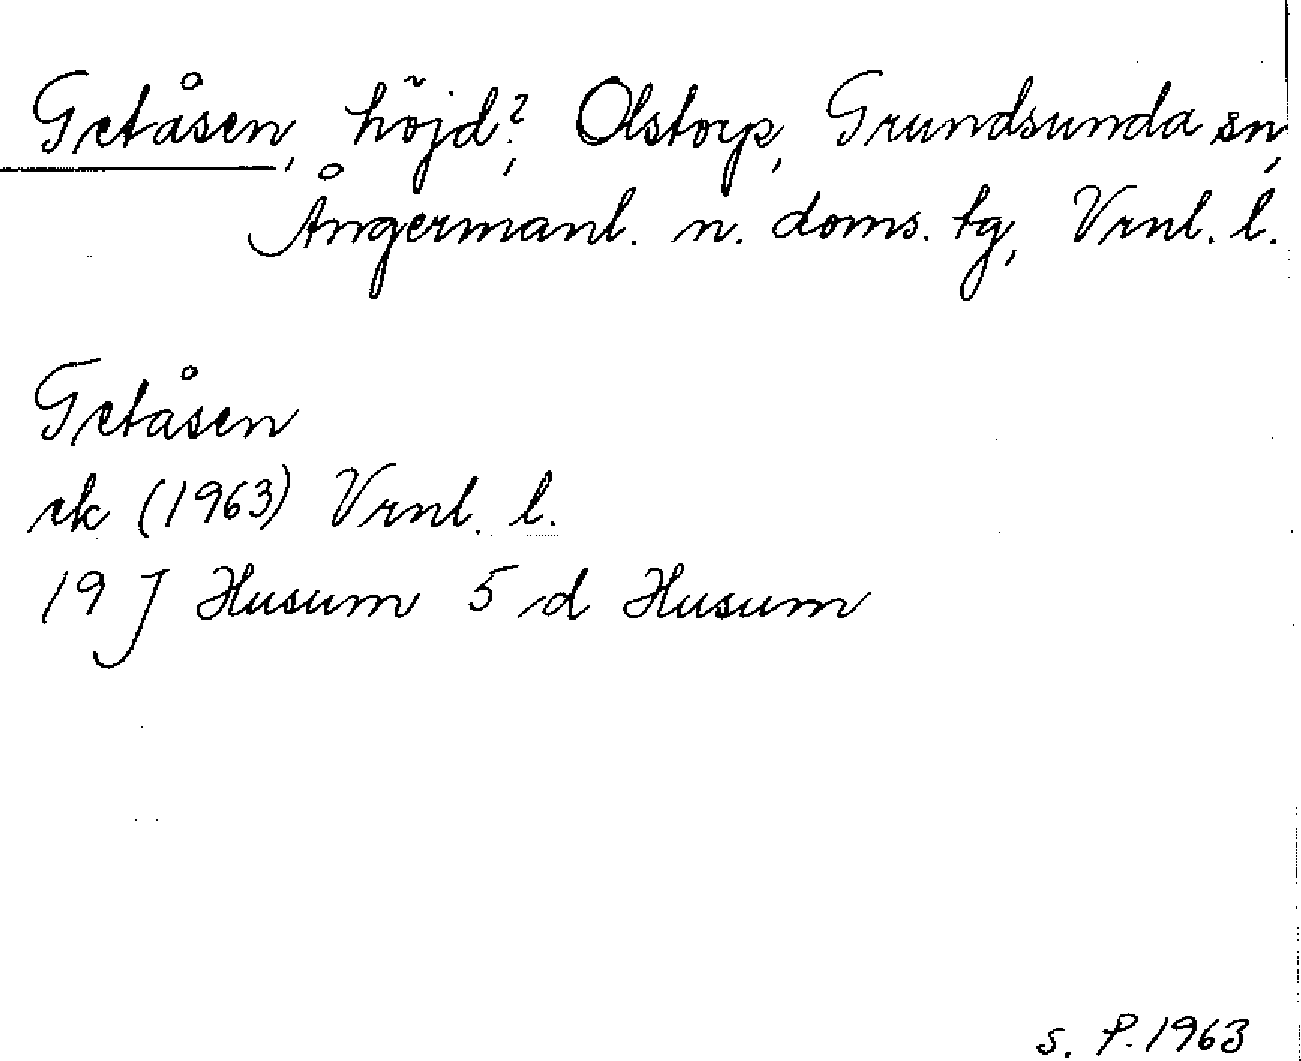 Getåsen, höjd?, Olstorp, Grundsunda sn,
Ångermanl. n. doms. tg, Vrnl. l.
Getåsen
ek (1963) Vrnl. l.
19 J Husum 5 d Husum
s. P. 1963